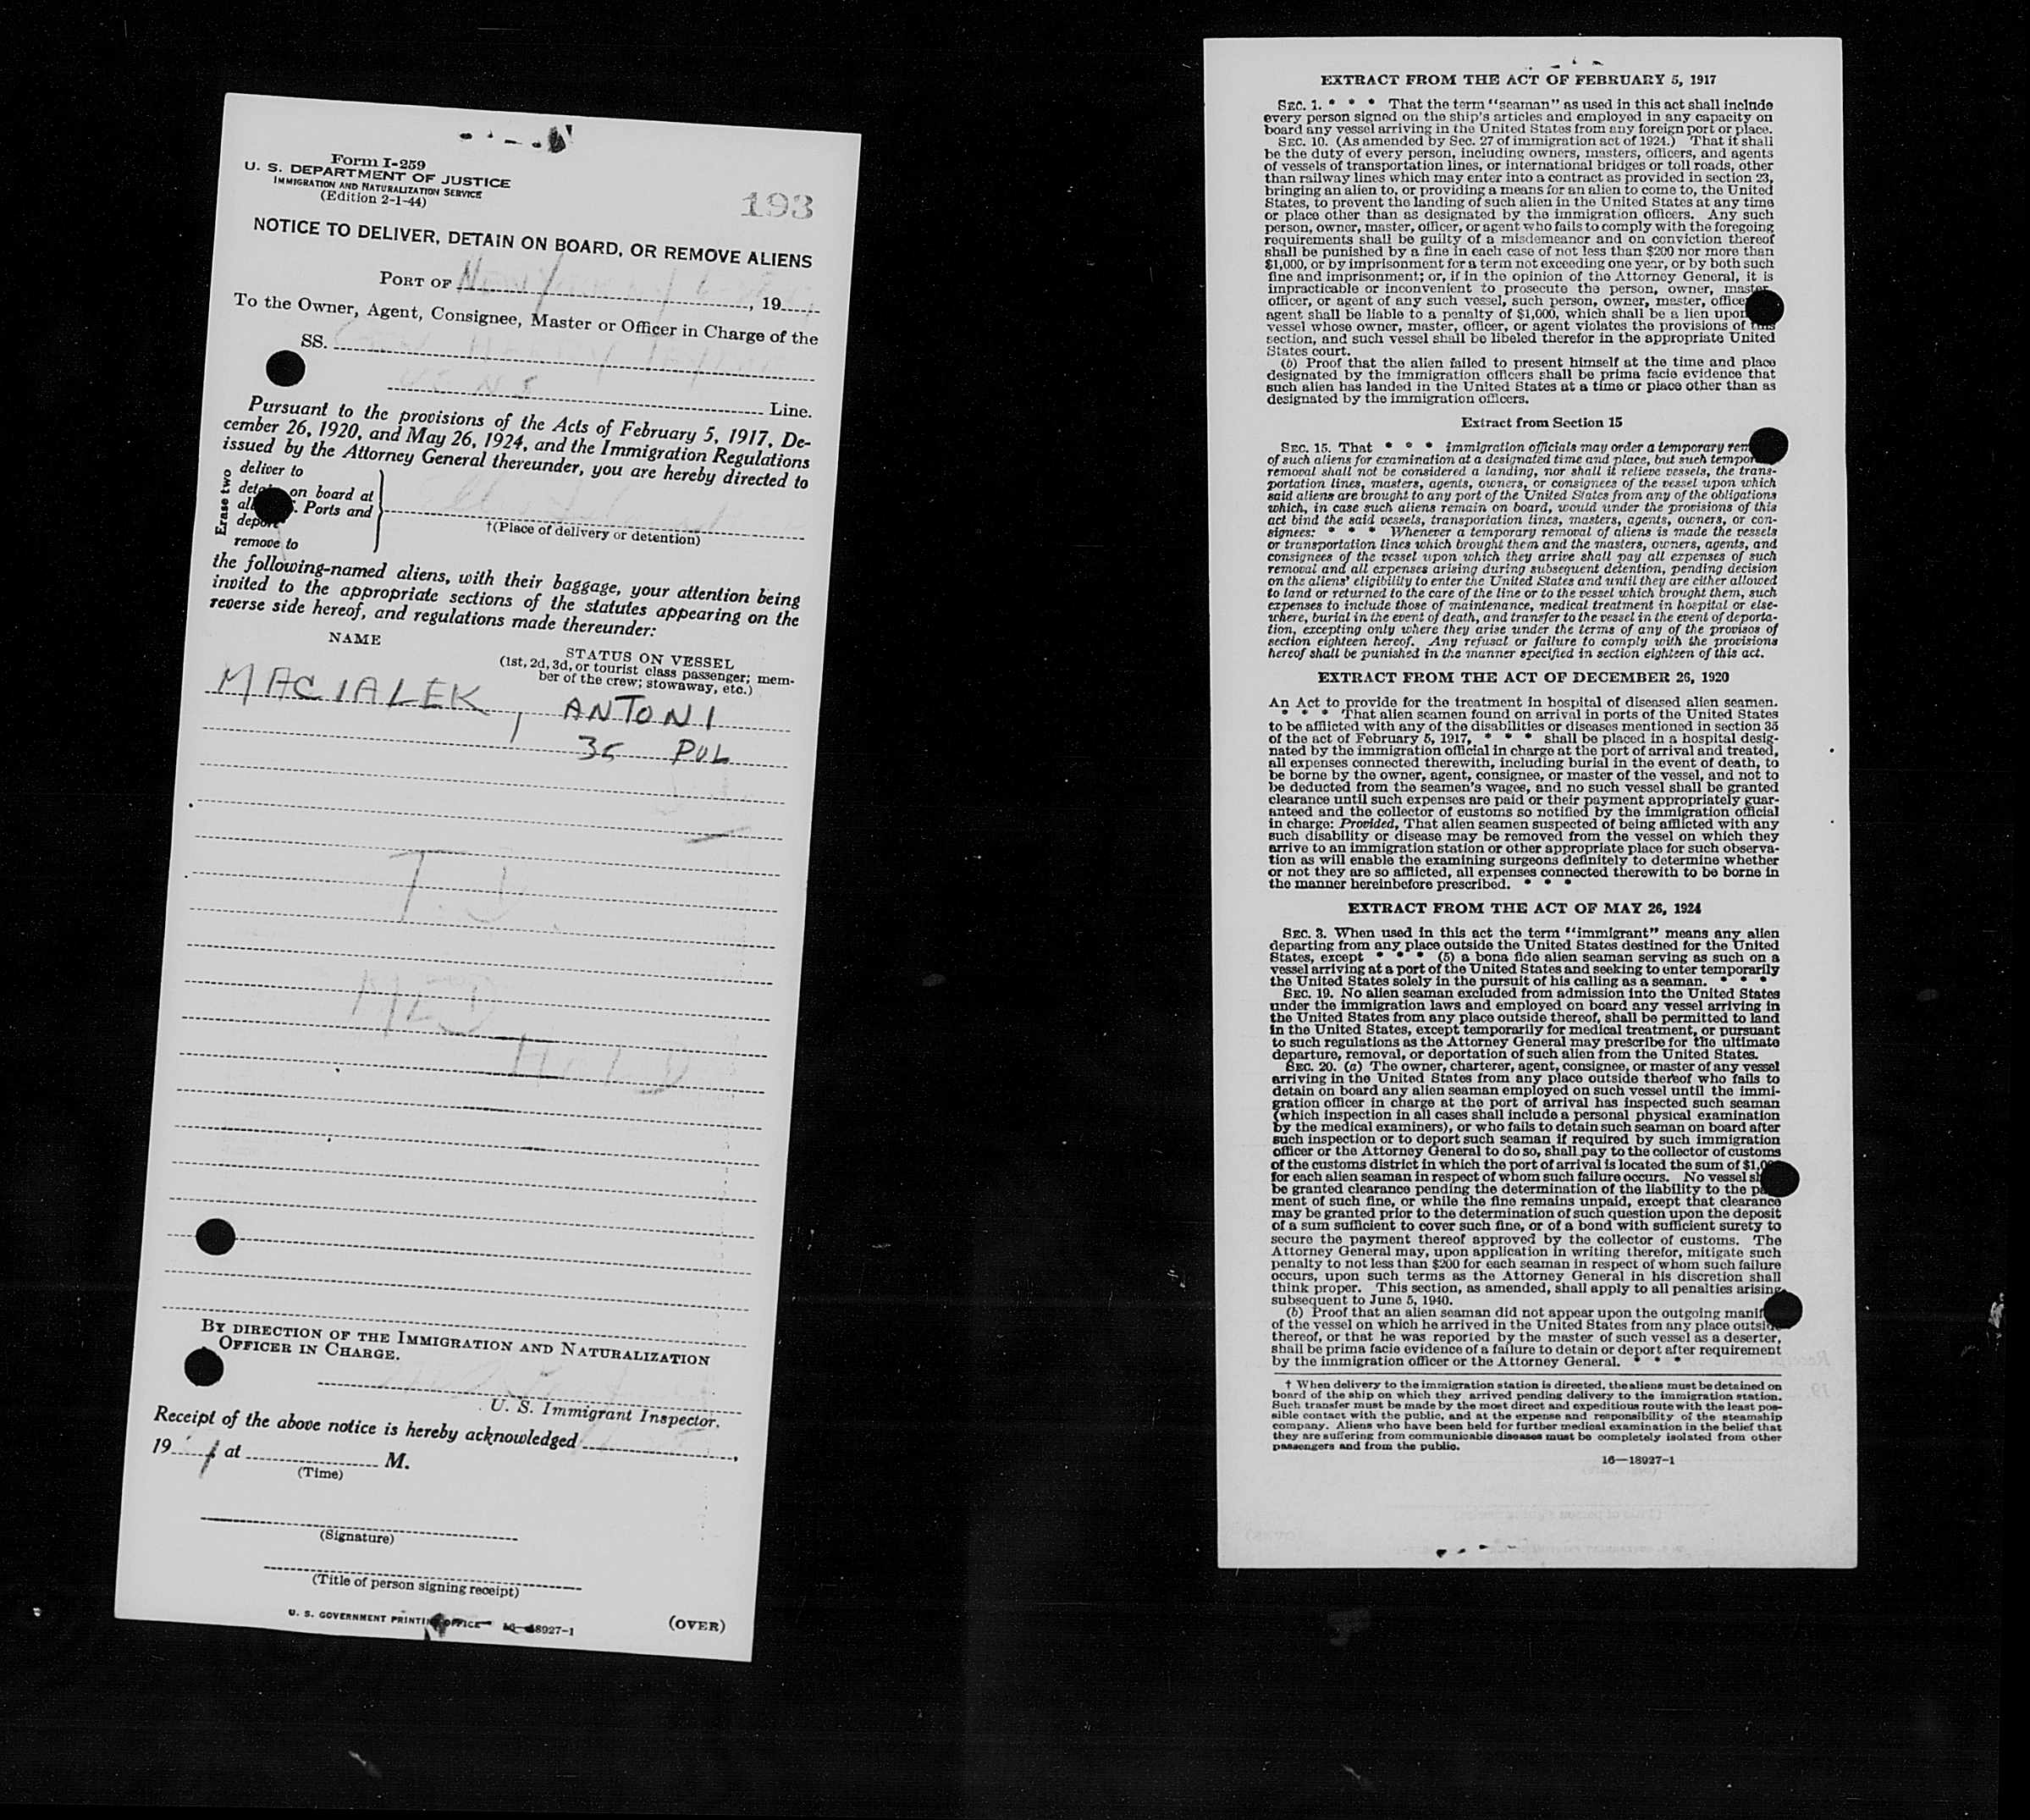 Form I-259
U. S. DEPARTMENT OF JUSTICE
IMMIGRATION AND NATURALIZATION SERVICE
(Edition 2-1-44)
193
NOTICE TO DELIVER, DETAIN ON BOARD, OR REMOVE ALIENS
PORT OF New , 19
To the Owner, Agent, Consignee, Master or Officer in Charge of the
SS.
Line.
Pursuant to the provisions of the Acts of February 5, 1917, De-
cember 26, 1920, and May 26, 1924, and the Immigration Regulations
issued by the Attorney General thereunder, you are hereby directed to
Erase two
deliver to
on board at
Ports and
remove to
†(Place of delivery or detention)
the following-named aliens, with their baggage, your attention being
invited to the appropriate sections of the statutes appearing on the
reverse side hereof, and regulations made thereunder:
NAME
STATUS ON VESSEL
(1st, 2d, 3d, or tourist class passenger; mem-
ber of the crew; stowaway, etc.)
MACIALEK, ANTONI
35 POL
T.D.
MED
Hold
BY DIRECTION OF THE IMMIGRATION AND NATURALIZATION
OFFICER IN CHARGE.
U. S. Immigrant Inspector.
Receipt of the above notice is hereby acknowledged ,
19 at M.
(Time)
(Signature)
(Title of person signing receipt)
U. S. GOVERNMENT PRINTING OFFICE 16—18927-1
(OVER)
EXTRACT FROM THE ACT OF FEBRUARY 5, 1917
SEC. 1. * * * That the term "seaman" as used in this act shall include
every person signed on the ship's articles and employed in any capacity on
board any vessel arriving in the United States from any foreign port or place.
SEC. 10. (As amended by Sec. 27 of immigration act of 1924.) That it shall
be the duty of every person, including owners, masters, officers, and agents
of vessels of transportation lines, or international bridges or toll roads, other
than railway lines which may enter into a contract as provided in section 23,
bringing an alien to, or providing a means for an alien to come to, the United
States, to prevent the landing of such alien in the United States at any time
or place other than as designated by the immigration officers. Any such
person, owner, master, officer, or agent who fails to comply with the foregoing
requirements shall be guilty of a misdemeanor and on conviction thereof
shall be punished by a fine in each case of not less than $200 nor more than
$1,000, or by imprisonment for a term not exceeding one year, or by both such
fine and imprisonment; or, if in the opinion of the Attorney General, it is
impracticable or inconvenient to prosecute the person, owner, master
officer, or agent of any such vessel, such person, owner, master, officer
agent shall be liable to a penalty of $1,000, which shall be a lien upon
vessel whose owner, master, officer, or agent violates the provisions of this
section, and such vessel shall be libeled therefor in the appropriate United
States court.
(b) Proof that the alien failed to present himself at the time and place
designated by the immigration officers shall be prima facie evidence that
such alien has landed in the United States at a time or place other than as
designated by the immigration officers.
Extract from Section 15
SEC. 15. That * * * immigration officials may order a temporary rem
of such aliens for examination at a designated time and place, but such tempor
removal shall not be considered a landing, nor shall it relieve vessels, the trans-
portation lines, masters, agents, owners, or consignees of the vessel upon which
said aliens are brought to any port of the United States from any of the obligations
which, in case such aliens remain on board, would under the provisions of this
act bind the said vessels, transportation lines, masters, agents, owners, or con-
signees: * * * Whenever a temporary removal of aliens is made the vessels
or transportation lines which brought them and the masters, owners, agents, and
consignees of the vessel upon which they arrive shall pay all expenses of such
removal and all expenses arising during subsequent detention, pending decision
on the aliens' eligibility to enter the United States and until they are either allowed
to land or returned to the care of the line or to the vessel which brought them, such
expenses to include those of maintenance, medical treatment in hospital or else-
where, burial in the event of death, and transfer to the vessel in the event of deporta-
tion, excepting only where they arise under the terms of any of the provisos of
section eighteen hereof. Any refusal or failure to comply with the provisions
hereof shall be punished in the manner specified in section eighteen of this act.
EXTRACT FROM THE ACT OF DECEMBER 26, 1920
An Act to provide for the treatment in hospital of diseased alien seamen.
* * * That alien seamen found on arrival in ports of the United States
to be afflicted with any of the disabilities or diseases mentioned in section 35
of the act of February 5, 1917, * * * shall be placed in a hospital desig-
nated by the immigration official in charge at the port of arrival and treated,
all expenses connected therewith, including burial in the event of death, to
be borne by the owner, agent, consignee, or master of the vessel, and not to
be deducted from the seamen's wages, and no such vessel shall be granted
clearance until such expenses are paid or their payment appropriately guar-
anteed and the collector of customs so notified by the immigration official
in charge: Provided, That alien seamen suspected of being afflicted with any
such disability or disease may be removed from the vessel on which they
arrive to an immigration station or other appropriate place for such observa-
tion as will enable the examining surgeons definitely to determine whether
or not they are so afflicted, all expenses connected therewith to be borne in
the manner hereinbefore prescribed. * * *
EXTRACT FROM THE ACT OF MAY 26, 1924
SEC. 3. When used in this act the term "immigrant" means any alien
departing from any place outside the United States destined for the United
States, except * * * (5) a bona fide alien seaman serving as such on a
vessel arriving at a port of the United States and seeking to enter temporarily
the United States solely in the pursuit of his calling as a seaman. * * *
SEC. 19. No alien seaman excluded from admission into the United States
under the immigration laws and employed on board any vessel arriving in
the United States from any place outside thereof, shall be permitted to land
in the United States, except temporarily for medical treatment, or pursuant
to such regulations as the Attorney General may prescribe for the ultimate
departure, removal, or deportation of such alien from the United States.
SEC. 20. (a) The owner, charterer, agent, consignee, or master of any vessel
arriving in the United States from any place outside thereof who fails to
detain on board any alien seaman employed on such vessel until the immi-
gration officer in charge at the port of arrival has inspected such seaman
(which inspection in all cases shall include a personal physical examination
by the medical examiners), or who fails to detain such seaman on board after
such inspection or to deport such seaman if required by such immigration
officer or the Attorney General to do so, shall pay to the collector of customs
of the customs district in which the port of arrival is located the sum of $1,0
for each alien seaman in respect of whom such failure occurs. No vessel sh
be granted clearance pending the determination of the liability to the pa
ment of such fine, or while the fine remains unpaid, except that clearance
may be granted prior to the determination of such question upon the deposit
of a sum sufficient to cover such fine, or of a bond with sufficient surety to
secure the payment thereof approved by the collector of customs. The
Attorney General may, upon application in writing therefor, mitigate such
penalty to not less than $200 for each seaman in respect of whom such failure
occurs, upon such terms as the Attorney General in his discretion shall
think proper. This section, as amended, shall apply to all penalties arising
subsequent to June 5, 1940.
(b) Proof that an alien seaman did not appear upon the outgoing manif
of the vessel on which he arrived in the United States from any place outside
thereof, or that he was reported by the master of such vessel as a deserter,
shall be prima facie evidence of a failure to detain or deport after requirement
by the immigration officer or the Attorney General. * * *
† When delivery to the immigration station is directed, the aliens must be detained on
board of the ship on which they arrived pending delivery to the immigration station.
Such transfer must be made by the most direct and expeditious route with the least pos-
sible contact with the public, and at the expense and responsibility of the steamship
company. Aliens who have been held for further medical examination in the belief that
they are suffering from communicable diseases must be completely isolated from other
passengers and from the public.
16—18927-1